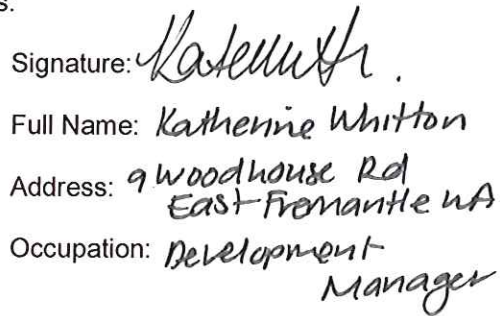 s.
Signature:
Full Name: Katherine Whitton
Address: 9 Woodhouse Rd
East Fremantle WA
Occupation: Development
Manager